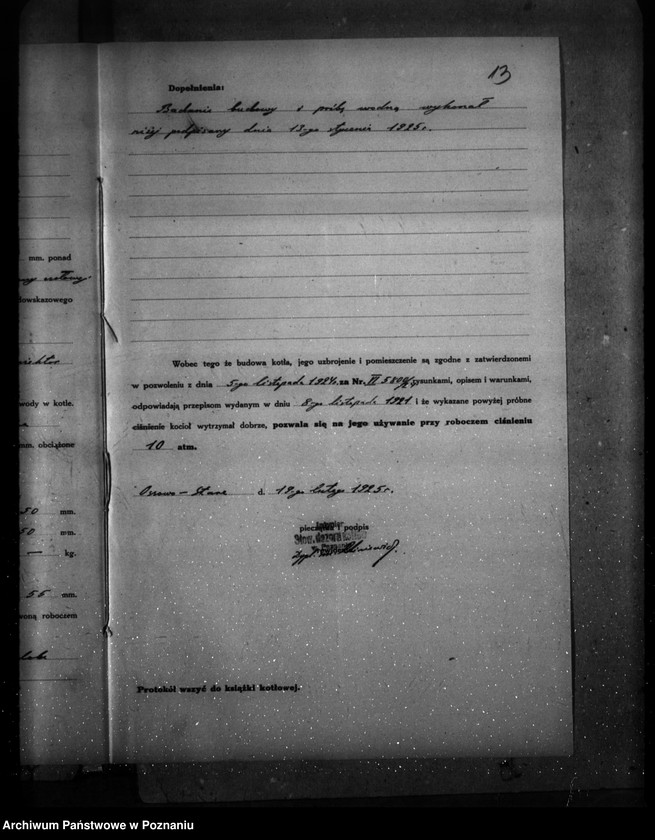 13
Dopełnienia:
Badanie budowy i próbę wodną wykonał
niżej podpisany dnia 13-go stycznia 1925r.
mm. ponad
dowskazowego
wody w kotle.
mm. obciążone
50 mm.
50 mm.
— kg.
55 mm.
roboczem
Wobec tego że budowa kotła, jego uzbrojenie i pomieszczenie są zgodne z zatwierdzonemi
w pozwoleniu z dnia 5-go listopada 1924. za Nr. rysunkami, opisem i warunkami,
odpowiadają przepisom wydanym w dniu 8-go listopada 1921 i że wykazane powyżej próbne
ciśnienie kocioł wytrzymał dobrze, pozwala się na jego używanie przy roboczem ciśnieniu
10 atm.
d. 19-go lutego 1925r.
pieczątka i podpis
Protokół wszyć do książki kotłowej.
Archiwum Państwowe w Poznaniu